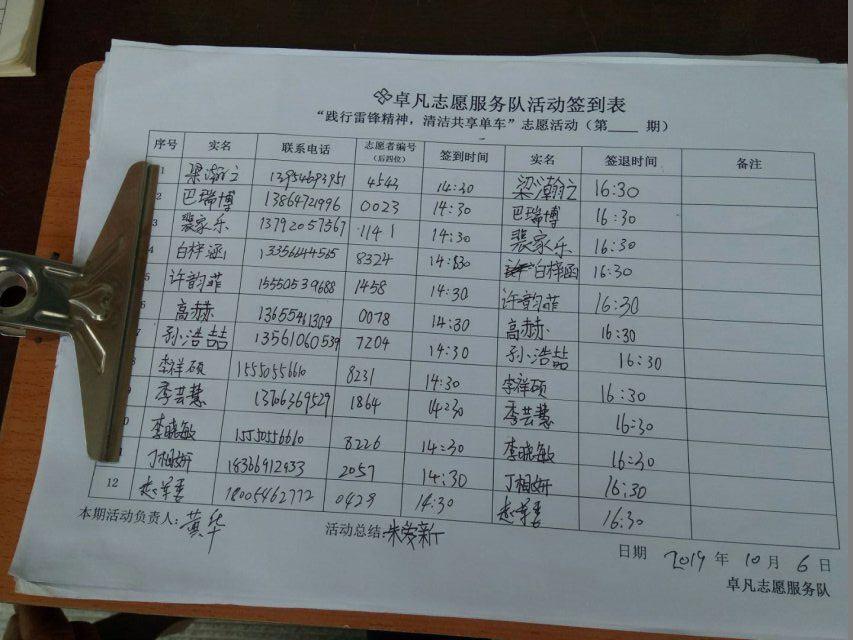 卓凡志愿服务队活动签到表
“践行雷锋精神，清洁共享单车”志愿活动（第 期）
序号 实名 联系电话 志愿者编号（后四位） 签到时间 实名 签退时间 备注
1 梁瀚立 13954693951 4543 14:30 梁瀚立 16:30
2 巴瑞博 13864721996 0023 14:30 巴瑞博 16:30
3 裴家乐 13792057567 1141 14:30 裴家乐 16:30
4 白梓涵 8324 14:30 白梓涵 16:30
5 许韵菲 15550539688 1458 14:30 许韵菲 16:30
6 高赫 0078 14:30 高赫 16:30
7 孙浩喆 13561060539 7204 14:30 孙浩喆 16:30
李祥硕 15550556610 8231 14:30 李祥硕 16:30
9 李芸慧 13706369529 1864 14:30 李芸慧 16:30
0 李晓敏 15550556610 8226 14:30 李晓敏 16:30
丁相妍 18366912933 2057 14:30 丁相妍 16:30
12 18005462772 0429 14:30 16:30
本期活动负责人：黄华 活动总结：朱爱新
日期 2019 年 10 月 6 日
卓凡志愿服务队